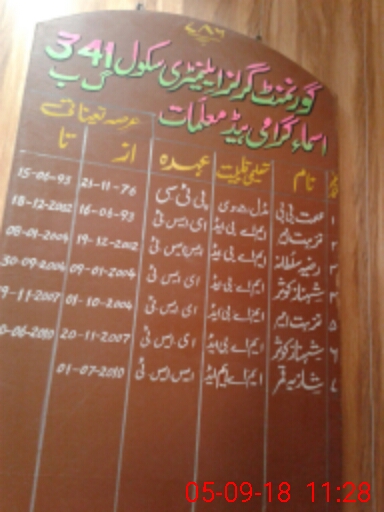 ۷۸۶
گورنمنٹ گرلز ایلیمنٹری سکول 341 گ ب
اسماء گرامی ہیڈ معلمات
نام تعلیمی قابلیت عہدہ عرصہ تعیناتی
از تا
۱ عصمت بی بی مڈل جے وی پی ٹی سی 21-11-76 15-06-93
۲ نزہت ایم ایم اے بی ایڈ ای ایس ٹی 16-06-93 18-12-2002
۳ رضیہ سلطانہ ایم اے بی ایڈ ایس ایس ٹی 19-12-2002 08-01-2004
۴ شہناز کوثر ایم اے بی ایڈ ای ایس ٹی 09-01-2004 30-09-2004
۵ نزہت ایم ایم اے بی ایڈ ای ایس ٹی 01-10-2004 9-11-2007
۶ شہناز کوثر ایم اے بی ایڈ ای ایس ٹی 20-11-2007 0-06-2010
۷ شازیہ قمر ایم اے ایم ایڈ ایس ایس ٹی 01-07-2010
05-09-18 11:28